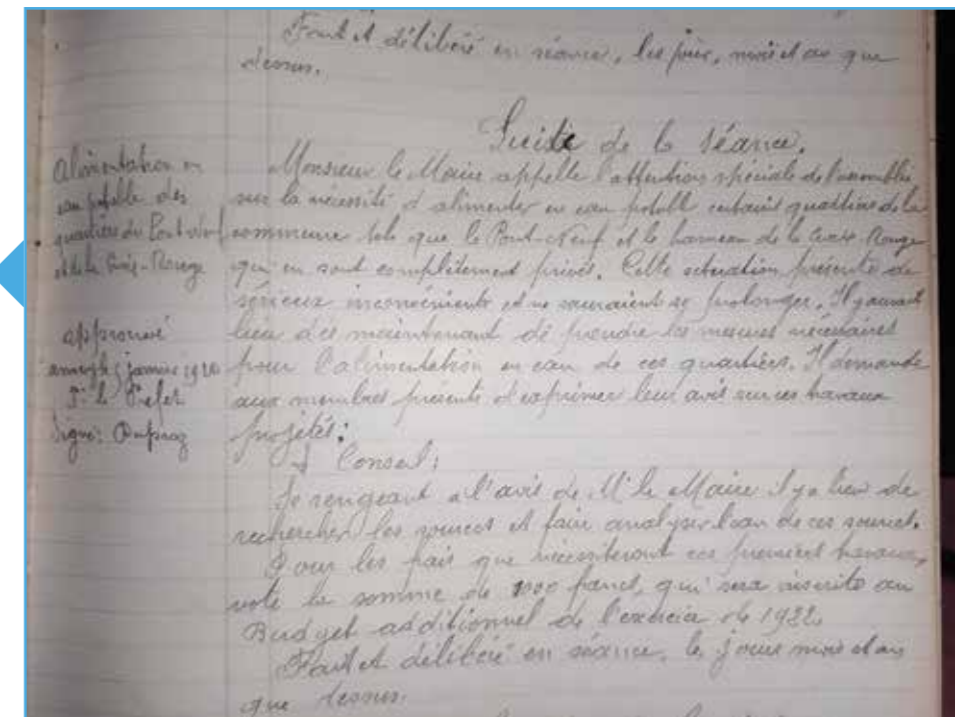 Fait et délibéré en séance, les jour, mois et an que
dessus.
Suite de la séance.
Alimentation en
eau potable des
quartiers du Pont-Neuf
et de la Croix-Rouge
approuvé
janvier
P. le Préfet
Signé: Dupraz
Monsieur le Maire appelle l'attention spéciale de l'assemblée
sur la nécessité d'alimenter en eau potable certains quartiers de la
commune tels que le Pont-Neuf et le hameau de la Croix-Rouge
qui en sont complètement privés. Cette situation présente de
sérieux inconvénients et ne sauraient se prolonger. Il y aurait
lieu dès maintenant de prendre les mesures nécessaires
pour l'alimentation en eau de ces quartiers. Il demande
aux membres présents d'exprimer leur avis sur ces travaux
projetés:
Le Conseil:
Se rengeant à l'avis de M. le Maire il y a lieu de
rechercher les sources et faire analyser l'eau de ces sources.
Pour les frais que nécessiteront ces premiers travaux,
vote la somme de 1000 francs, qui sera inscrite au
Budget additionnel de l'exercice de 1922.
Fait et délibéré en séance, les jours mois et an
que dessus.